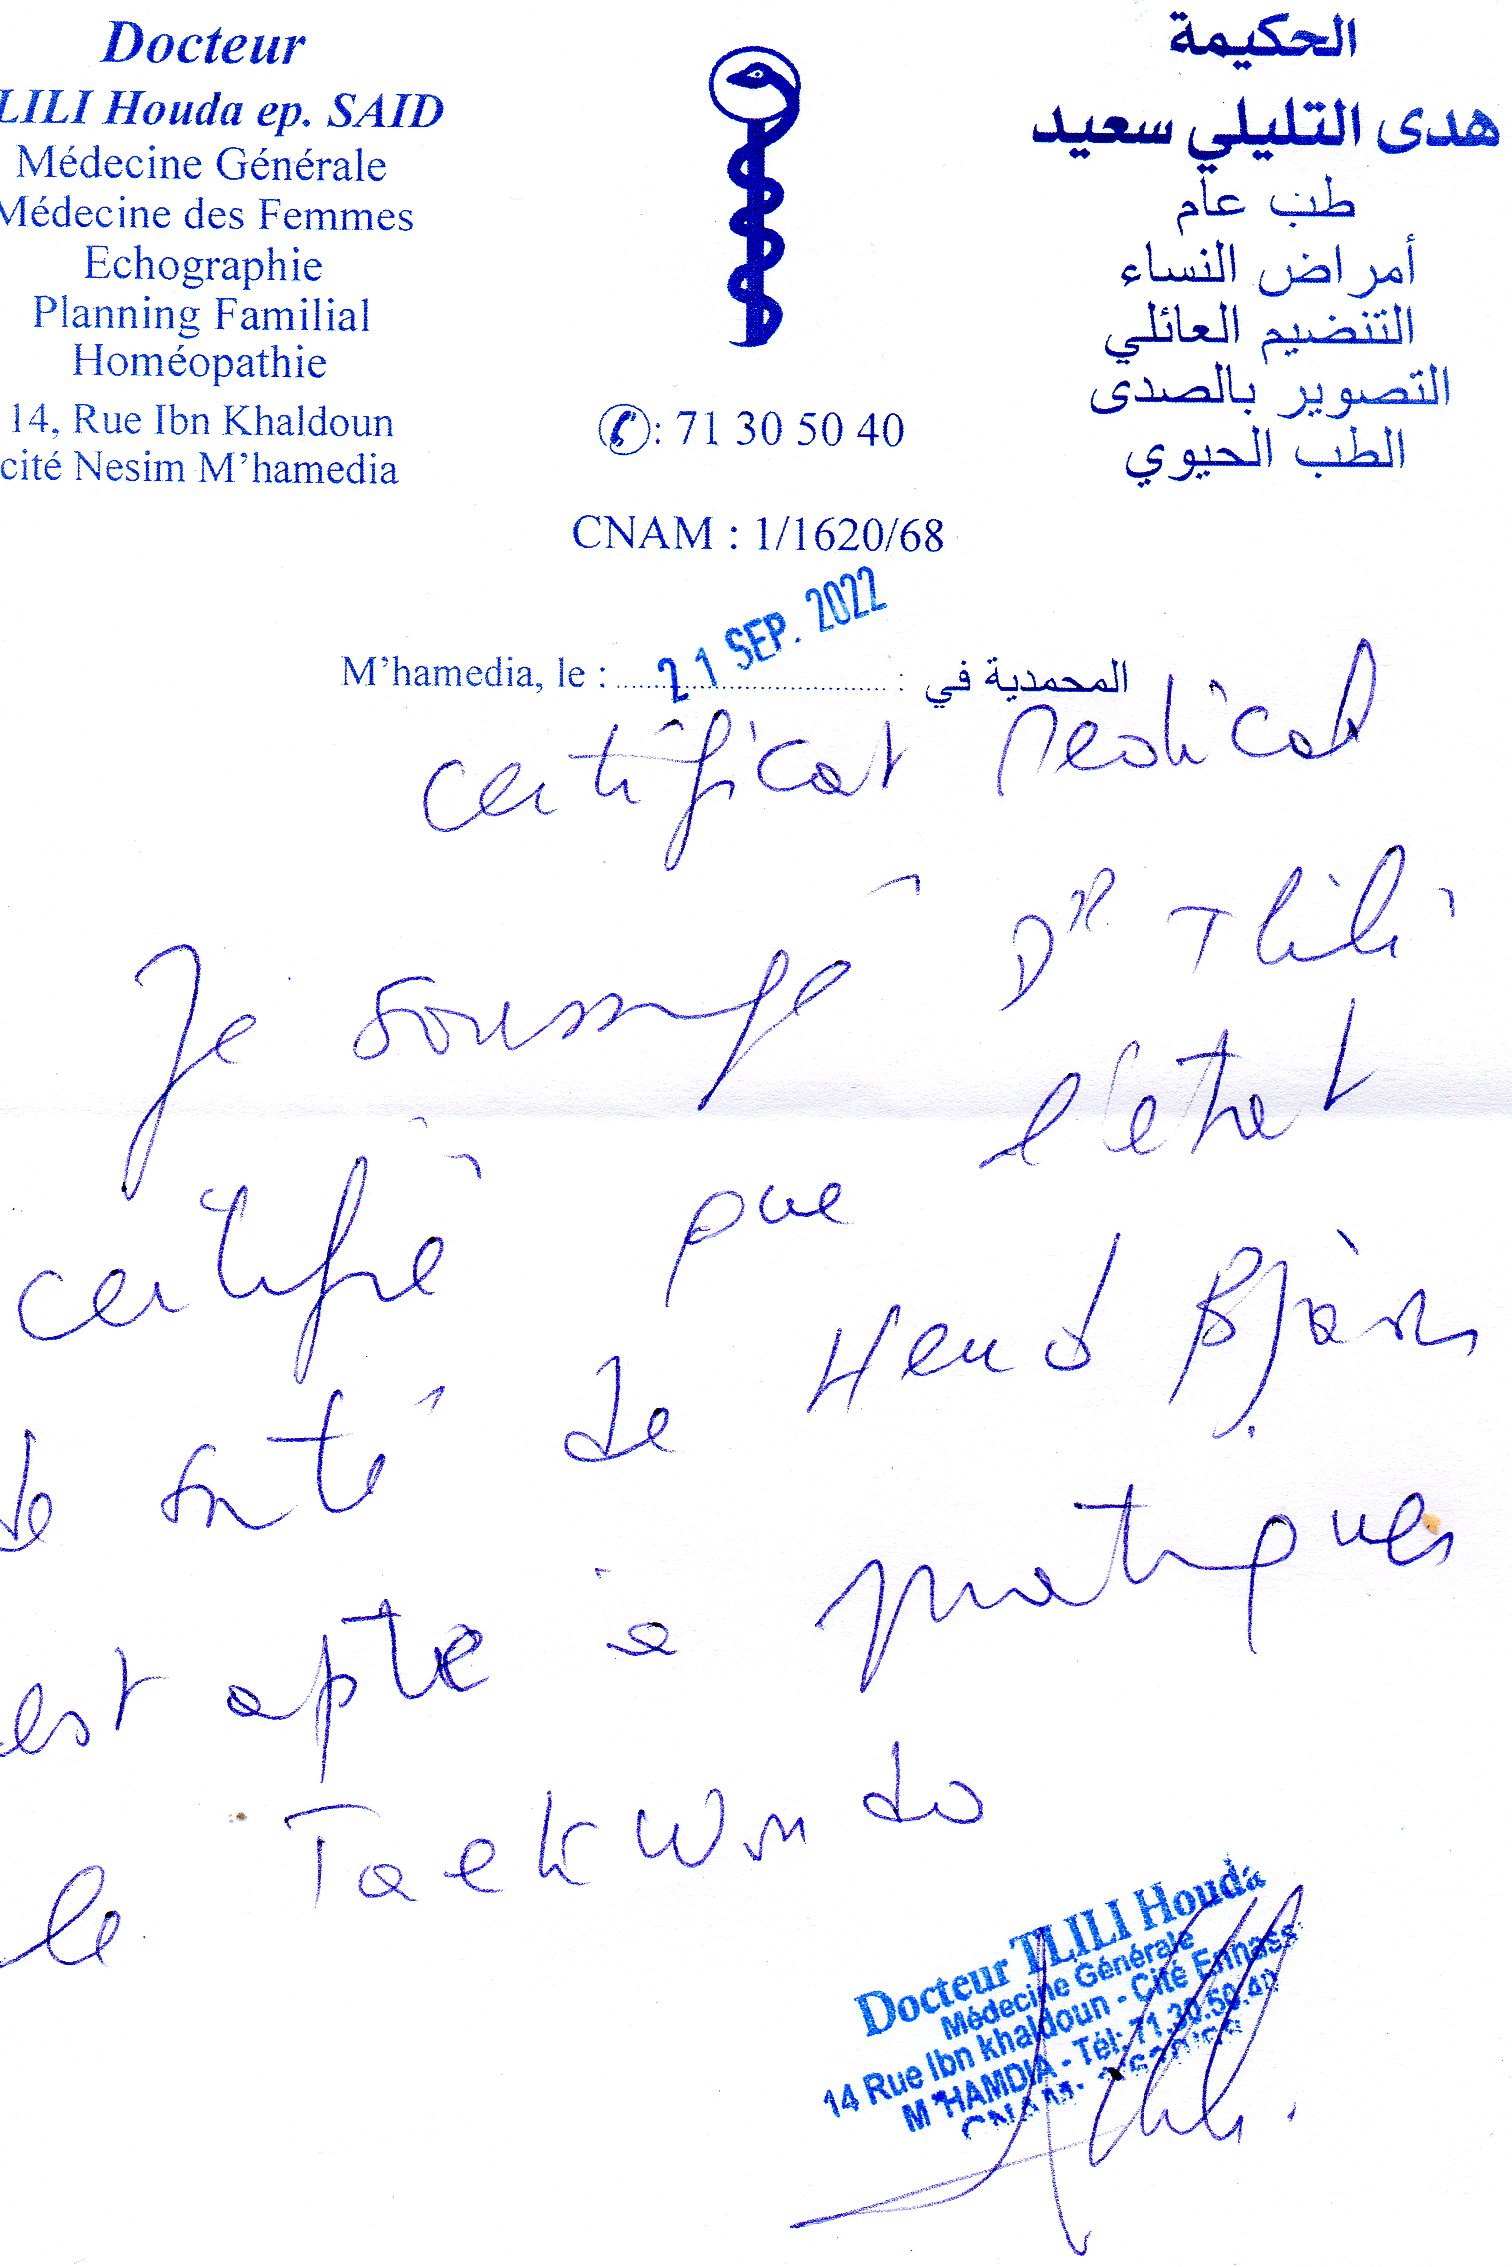 Docteur
LILI Houda ep. SAID
Médecine Générale
Médecine des Femmes
Echographie
Planning Familial
Homéopathie
14, Rue Ibn Khaldoun
cité Nesim M'hamedia
الحكيمة
هدى التليلي سعيد
طب عام
أمراض النساء
التنضيم العائلي
التصوير بالصدى
الطب الحيوي
: 71 30 50 40
CNAM : 1/1620/68
M'hamedia, le : 21 SEP. 2022 : المحمدية في
certificat Medical
Je soussigné Dr Tlili
certifié que l'état
de santé de Hend
est apte à pratiquer
le Taekwondo
Docteur TLILI Houda
Médecine Générale
14 Rue Ibn khaldoun - Cité Ennassi
M'HAMDIA - Tél: 71.30.50.40
CNAM: